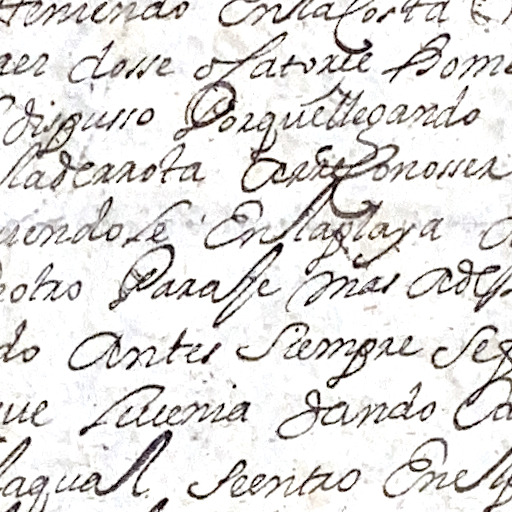 temiendo Enlacosta
aer dosse o latorre Bom
disgusto Porque llegando
laderrota arreConosser
iendose Enlaplaya a
otro Parasse mas adel
do Antes siempre se
ue sauenia dando Ca
laqual seentro Enel